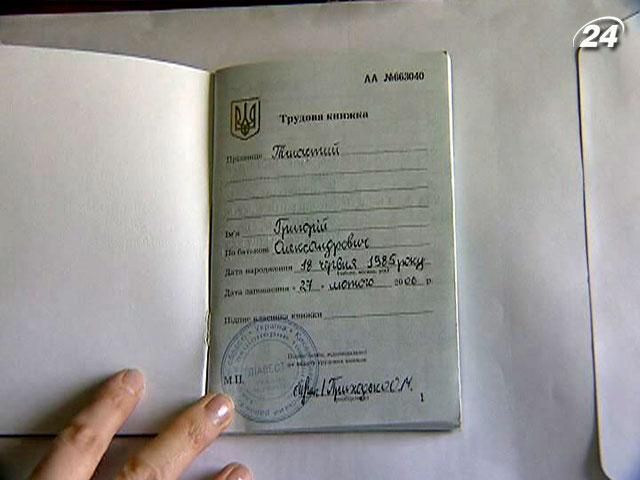 24
АА №663040
Трудова книжка
Прізвище
Ім'я Григорій
По батькові Олександрович
Дата народження 18 червня 1985 року
(число, місяць, рік)
Дата заповнення " 27 " лютого 2006 р.
Підпис власника книжки
Підпис особи, відповідальної
за видачу трудових книжок
М.П.
Приходько О.М.
1